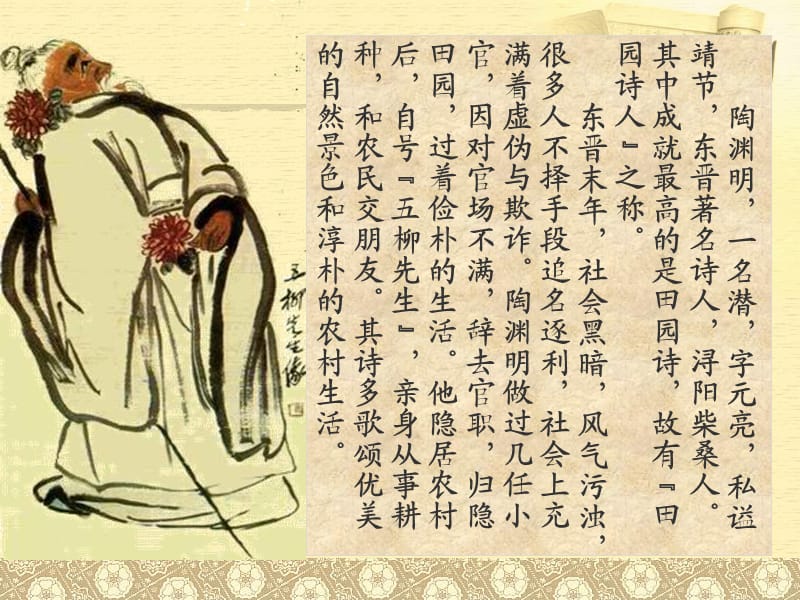 陶渊明，一名潜，字元亮，私谥
靖节，东晋著名诗人，浔阳柴桑人。
其中成就最高的是田园诗，故有『田
园诗人』之称。
东晋末年，社会黑暗，风气污浊，
很多人不择手段追名逐利，社会上充
满着虚伪与欺诈。陶渊明做过几任小
官，因对官场不满，辞去官职，归隐
田园，过着俭朴的生活。他隐居农村
后，自号『五柳先生』，亲身从事耕
种，和农民交朋友。其诗多歌颂优美
的自然景色和淳朴的农村生活。
五柳先生像